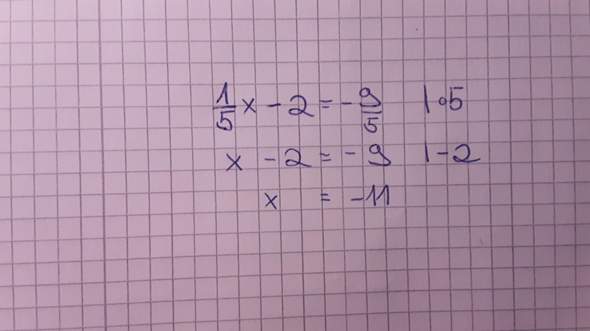 1/5 x - 2 = - 9/5 | ∘5
x - 2 = - 9 | - 2
x = -11